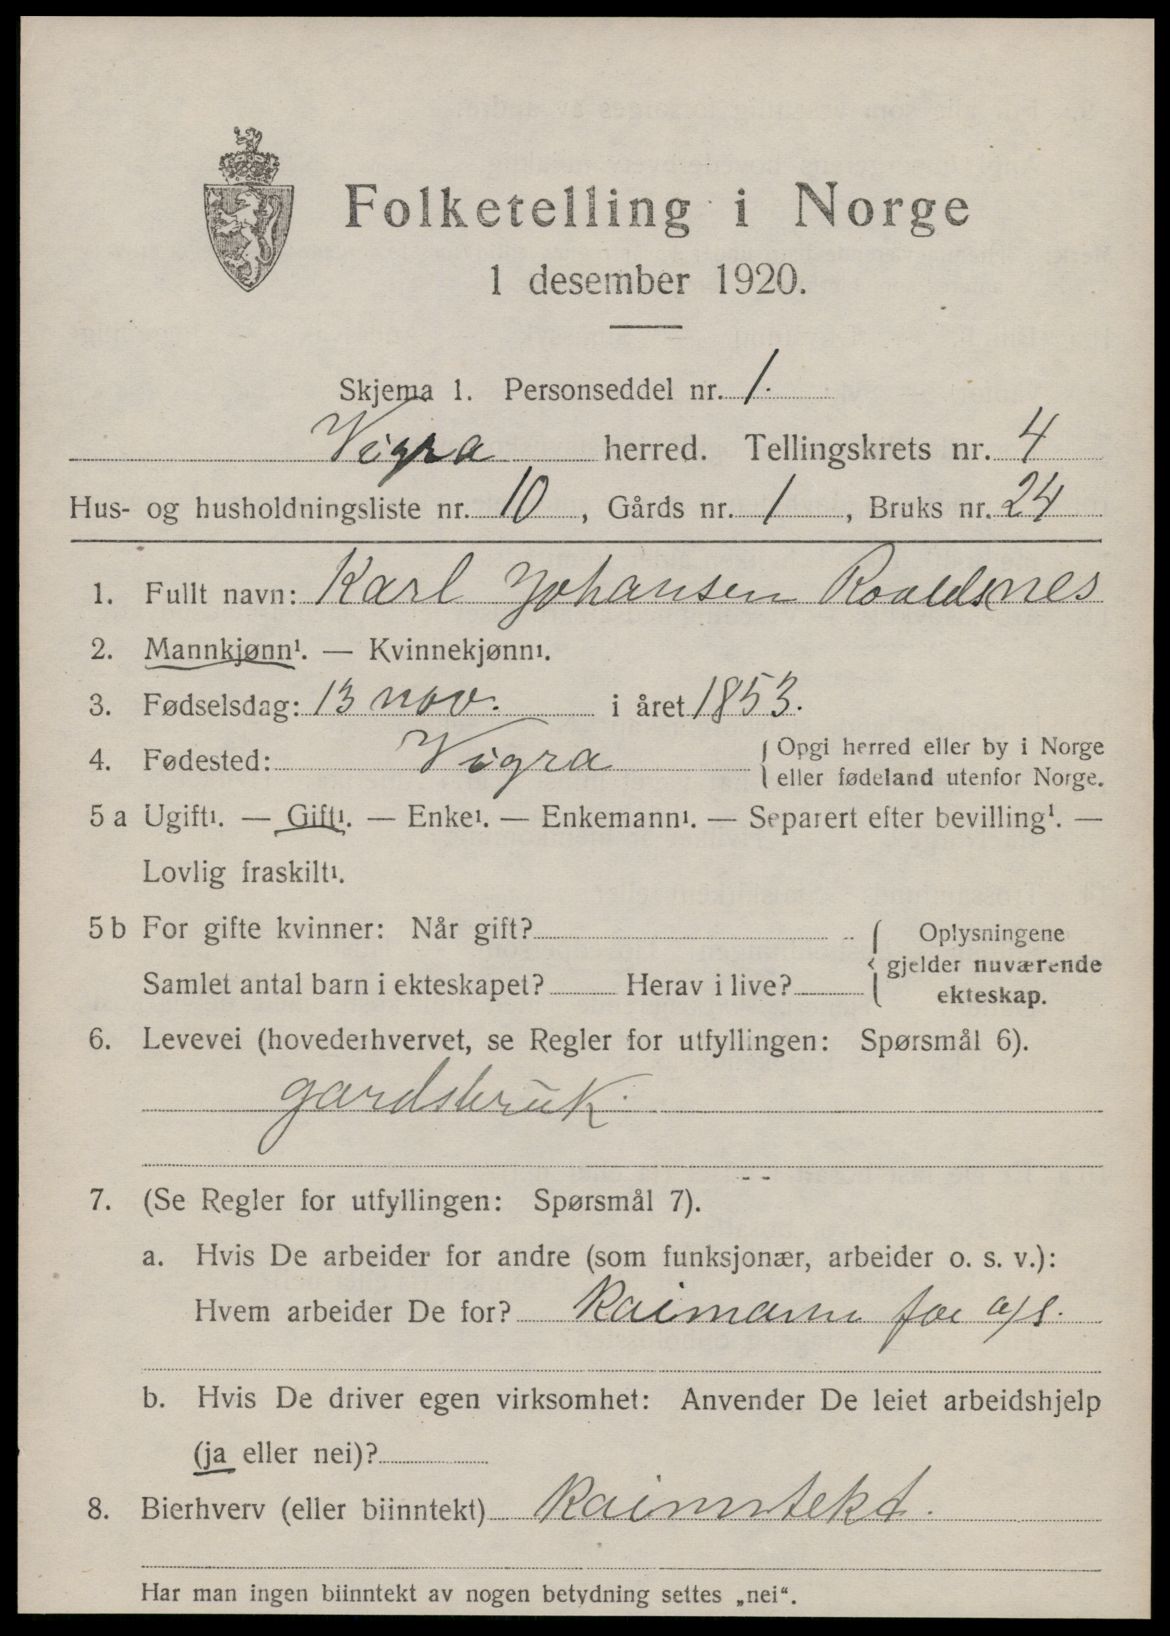 Folketelling i Norge
1 desember 1920.
Skjema 1. Personseddel nr. 1.
Vigra herred. Tellingskrets nr. 4
Hus- og husholdningsliste nr. 10, Gårds nr. 1, Bruks nr. 24
1. Fullt navn: Karl Johansen Roaldsnes
2. Mannkjønn¹. — Kvinnekjønn¹.
3. Fødselsdag: 13 nov. i året 1853.
4. Fødested: Vigra { Opgi herred eller by i Norge
eller fødeland utenfor Norge.
5 a Ugift¹. — Gift¹. — Enke¹. — Enkemann¹. — Separert efter bevilling¹. —
Lovlig fraskilt¹.
5 b For gifte kvinner: Når gift? { Oplysningene
gjelder nuværende
ekteskap.
Samlet antal barn i ekteskapet? Herav i live?
6. Levevei (hovederhvervet, se Regler for utfyllingen: Spørsmål 6).
gardsbruk.
7. (Se Regler for utfyllingen: Spørsmål 7).
a. Hvis De arbeider for andre (som funksjonær, arbeider o. s. v.):
Hvem arbeider De for? Kaimann for a/s.
b. Hvis De driver egen virksomhet: Anvender De leiet arbeidshjelp
(ja eller nei)?
8. Bierhverv (eller biinntekt) Kaiinntekt.
Har man ingen biinntekt av nogen betydning settes „nei“.